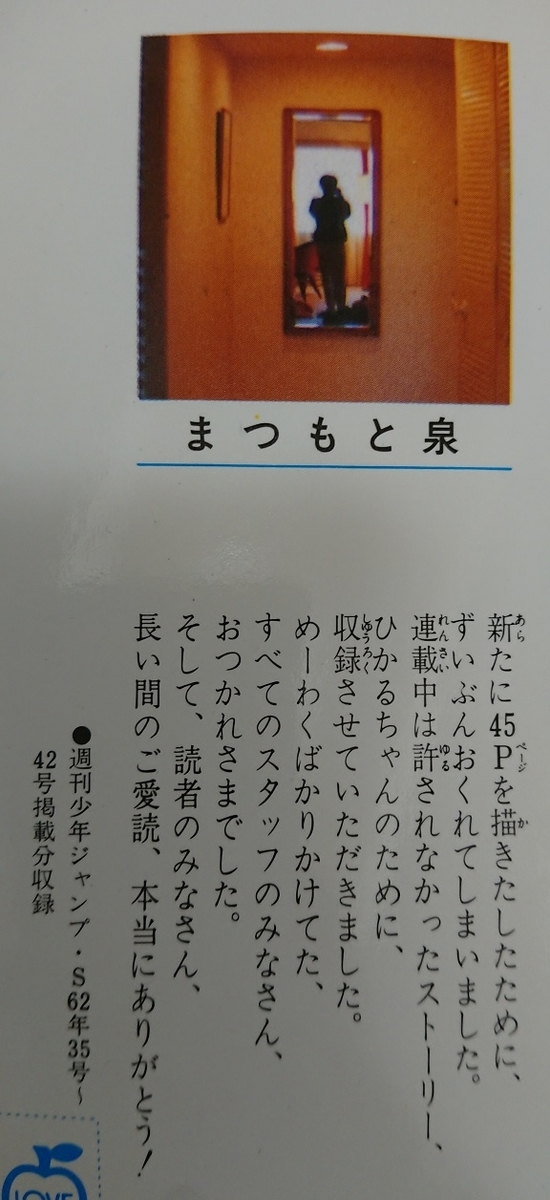 まつもと泉
新たに45Pを描きたしたために、
ずいぶんおくれてしまいました。
連載中は許されなかったストーリー、
ひかるちゃんのために、
収録させていただきました。
めーわくばかりかけてた、
すべてのスタッフのみなさん、
おつかれさまでした。
そして、読者のみなさん、
長い間のご愛読、本当にありがとう!
●週刊少年ジャンプ・S62年35号〜
42号掲載分収録
LOVE